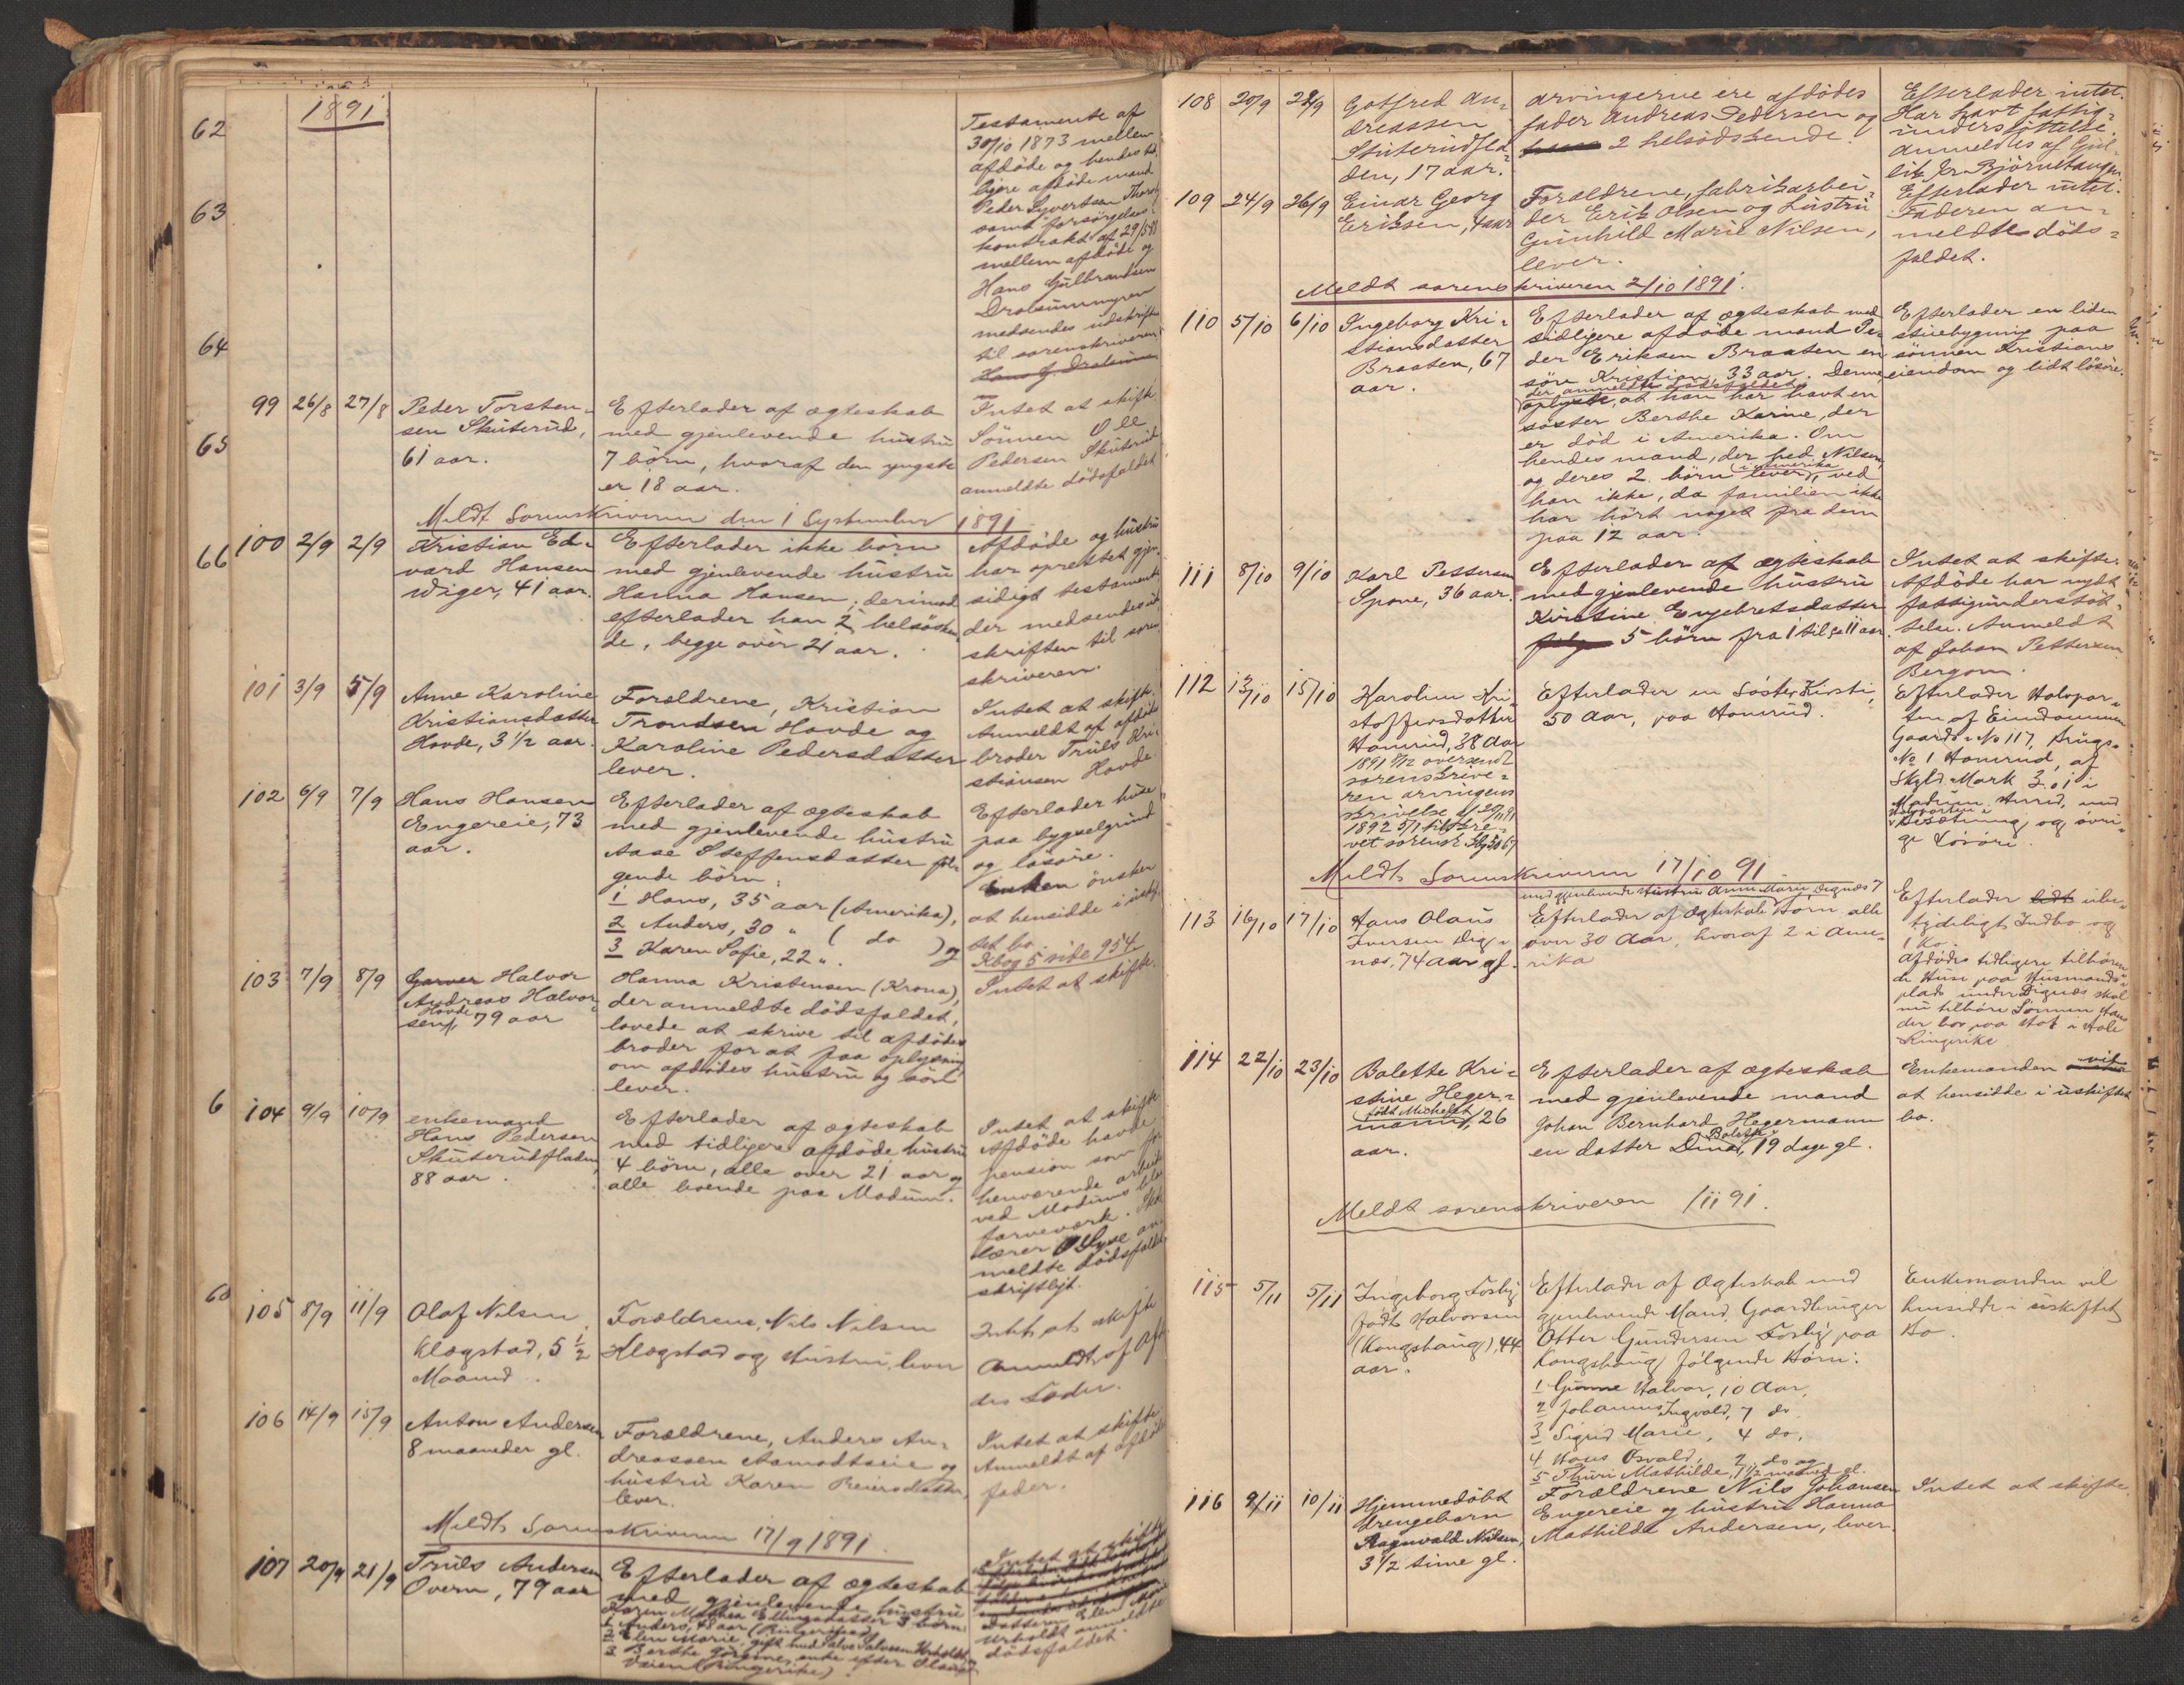 1891
Testamente af
30/10 1873 mellem
afdøde og hendes tid-
ligere afdøde mand
Peder Syvertsen
samt forsørgelses-
kontrakt af 29/5 88
mellem afdøde og
Hans Gulbrandsen
Drolsummyren
medsendes udskrift
til sorenskriveren
62
63
64
65
66
6
60
99 26/8 27/8
Peder Torsten-
sen Skuterud,
61 aar.
Efterlader af ægteskab
med gjenlevende hustru
7 børn, hvoraf den yngste
er 18 aar.
Intet at skifte
Sønnen Ole
Pedersen Skuterud
anmeldte dødsfaldet
Meldt Sorenskriveren den 1 September 1891
100 2/9 2/9
Kristian Ed-
vard Hansen
Wiger, 41 aar.
Efterlader ikke børn
med gjenlevende hustru
Hanna Hansen; derimod
efterlader han 2 helsøsken-
de, begge over 21 aar.
Afdøde og hustru
har oprettet gjen-
sidigt testamente
der medsendes ud-
skriften til soren-
skriveren.
101 3/9 5/9
Anne Karoline
Kristiansdatter
Hovde, 3 1/2 aar.
Forældrene, Kristian
Trondsen Hovde og
Karoline Pedersdatter
lever.
Intet at skifte.
Anmeldt af afdødes
broder Truls Kri-
stiansen Hovde.
102 6/9 7/9
Hans Hansen
Engereie, 73
aar.
Efterlader af ægteskab
med gjenlevende hustru
Aase Steffensdatter føl-
gende børn:
1 Hans, 35 aar (Amerika),
2 Anders, 30 " ( do ) og
3 Karen Sofie, 22 ".
Efterlader huse
paa bygselgrund
og løsøre.
Enken ønsker
at hensidde i uskif-
tet bo.
Kbog 5 side 954
103 7/9 8/9
Garver Halvor
Andreas Halvor-
sen Hovde, 79 aar
Hanna Kristensen (Krona),
der anmeldte dødsfaldet,
lovede at skrive til afdødes
broder for at faa oplysning
om afdødes hustru og søn
lever.
Intet at skifte.
104 9/9 10/9
enkemand
Hans Pedersen
Skuterudfladen,
88 aar.
Efterlader af ægteskab
med tidligere afdøde hustru
4 børn, alle over 21 aar og
alle boende paa Modum.
Intet at skifte
Afdøde havde
pension som for-
henværende arbeider
ved Modums blaa-
farveværk. Sko-
lærer O Lyse an-
meldte dødsfaldet
skriftligt.
105 8/9 11/9
Olaf Nilsen
Klægstad, 5 1/2
Maaned.
Forældrene, Nils Nilsen
Klægstad og Hustru, lever
Intet at skifte
Anmeldt af Afdø-
des Fader.
106 14/9 15/9
Anton Andersen
8 maaneder gl.
Forældrene, Anders An-
dreassen Aamodtseie og
hustru Karen Reiersdatter,
lever.
Intet at skifte
Anmeldt af afdødes
fader.
Meldt Sorenskriveren 17/9 1891.
107 20/9 21/9
Truls Andersen
Overn, 79 aar
Efterlader af ægteskab
med gjenlevende hustru
Karen Mathea Ellingsdatter 3 børn:
1 Anders, 48 aar (Ringerike),
2 Elen Marie, gift med Salve Salvesen Urholdt,
3 Berthe Jørgine, enke efter Olaus
Veien (Ringerike).
Intet at skifte
Datteren Elen Marie
Urholdt anmeldte
dødsfaldet.
108 20/9 22/9
Gotfred An-
dreassen
Skuterudfla-
den, 17 aar.
Arvingerne ere afdødes
fader Andreas Pedersen og
2 helsødskende.
Efterlader intet.
Har havt fattig-
understøttelse.
Anmeldtes af Gul-
lik Jør. Bjørnetangen
109 24/9 26/9
Einar Georg
Eriksen, 4 aar
Forældrene, fabrikarbei-
der Erik Olsen og hustru
Gunhild Marie Nilsen,
lever.
Efterlader intet.
Faderen an-
meldte døds-
faldet.
Meldt sorenskriveren 2/10 1891.
110 5/10 6/10
Ingeborg Kri-
stiansdatter
Braaten, 67
aar.
Efterlader af ægteskab med
tidligere afdøde mand Pe-
der Eriksen Braaten en
søn Kristian, 33 aar. Denne,
der anmeldte dødsfaldet,
oplyste, at han har havt en
søster Berthe Karine, der
er død i Amerika. Om
hendes mand, der hed Nilsen,
og deres 2 børn lever i Amerika, ved
han ikke, da familien ikke
har hørt noget fra dem
paa 12 aar.
Efterlader en liden
stuebygning paa
sønnen Kristians
eiendom og lidt løsøre.
111 8/10 9/10
Karl Pettersen
Spone, 36 aar.
Efterlader af ægteskab
med gjenlevende hustru
Kirstine Engebretsdatter
5 børn fra 1 til 11 aar.
Intet at skifte.
Afdøde har nydt
fattigunderstøt-
telse. Anmeldt
af Johan Pettersen
Bergom.
112 13/10 15/10
Karoline Kri-
stoffersdatter
Homerud, 38 Aar
1891 oversendt
sorenskrive-
ren arvingens
skrivelse af 29/11 91
1892 5/1 tilskre-
vet sorensk.
Efterlader en Søster Kirsti,
50 Aar, paa Homerud.
Efterlader Halvpar-
ten af Eiendommen
Gaards-No 117, Brugs-
No 1 Homerud, af
Skyld Mark 3.01 i
Modum Herred, med
Halvparten i
Besætning og øvri-
ge Løsøre.
Meldt Sorenskriveren 17/10 91
113 16/10 17/10
Hans Olaus
Iversen Dig-
næs, 74 Aar gl.
med gjenlevende Hustru Anne Marie Dignæs 7
Efterlader af Ægteskab Børn alle
over 30 Aar, hvoraf 2 i Ame-
rika
Efterlader lidt ube-
tydeligt Indbo og
1 Ko.
Afdødes tidligere tilhøren-
de Huse paa Husmands-
plads under Dignæs skal
nu tilhøre Sønnen Hans
der bor paa Hot i Hole
Ringerike.
114 22/10 23/10
Bolette Kri-
stine Heger-
mann, født Michelet, 26
aar.
Efterlader af ægteskab
med gjenlevende mand
Johan Bernhard Hegermann
en datter Dina Bolette, 19 dage gl.
Enkemanden vil
at hensidde i uskiftet
bo.
Meldt sorenskriveren 1/11 91.
115 5/11 5/11
Ingeborg Fosby
født Halvorsen
(Kongshaug), 44
aar.
Efterlader af Ægteskab med
gjenlevende Mand, Gaardbruger
Otter Gundersen Fosby paa
Kongshaug følgende Børn:
1 Gunne Halvor, 10 Aar,
2 Johannes Ingvald, 7 do.
3 Sigrid Marie, 4 do,
4 Hans Osvald, 2 do og
5 Thuri Mathilde, 1 1/2 maaned gl.
Enkemanden vil
hensidde i uskiftet
Bo.
116 9/11 10/11
Hjemmedøbt
drengebarn
Ragnvald Nilsen,
3 1/2 time gl.
Forældrene Nils Johansen
Engereie og hustru Hanna
Mathilde Andersen, lever.
Intet at skifte.